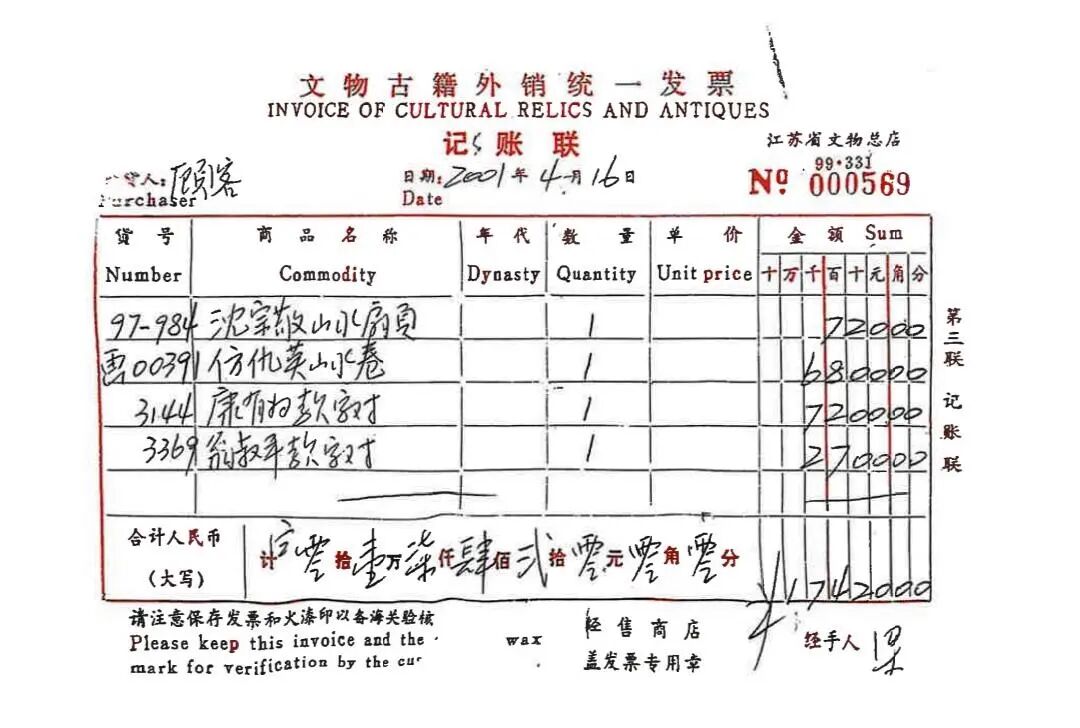 文物古籍外销统一发票
INVOICE OF CULTURAL RELICS AND ANTIQUES
记账联
江苏省文物总店
99·331
Nº 000569
货人: 顾客
Purchaser
日期: 2001年4月16日
Date
货号 商品名称 年代 数量 单价 金额 Sum
Number Commodity Dynasty Quantity Unit price 十万千百十元角分
97-984 沈宗敬山水扇页 1 72000
00391 仿仇英山水卷 1 680000
3144 康有为款字对 1 720000
3369 翁叔平款字对 1 270000
合计人民币
(大写)
计 零拾壹万柒仟肆佰弍拾零元零角零分 ¥1742000
第三联 记账联
请注意保存发票和火漆印以备海关验核
Please keep this invoice and the wax
mark for verification by the cu
经售商店
盖发票专用章
经手人